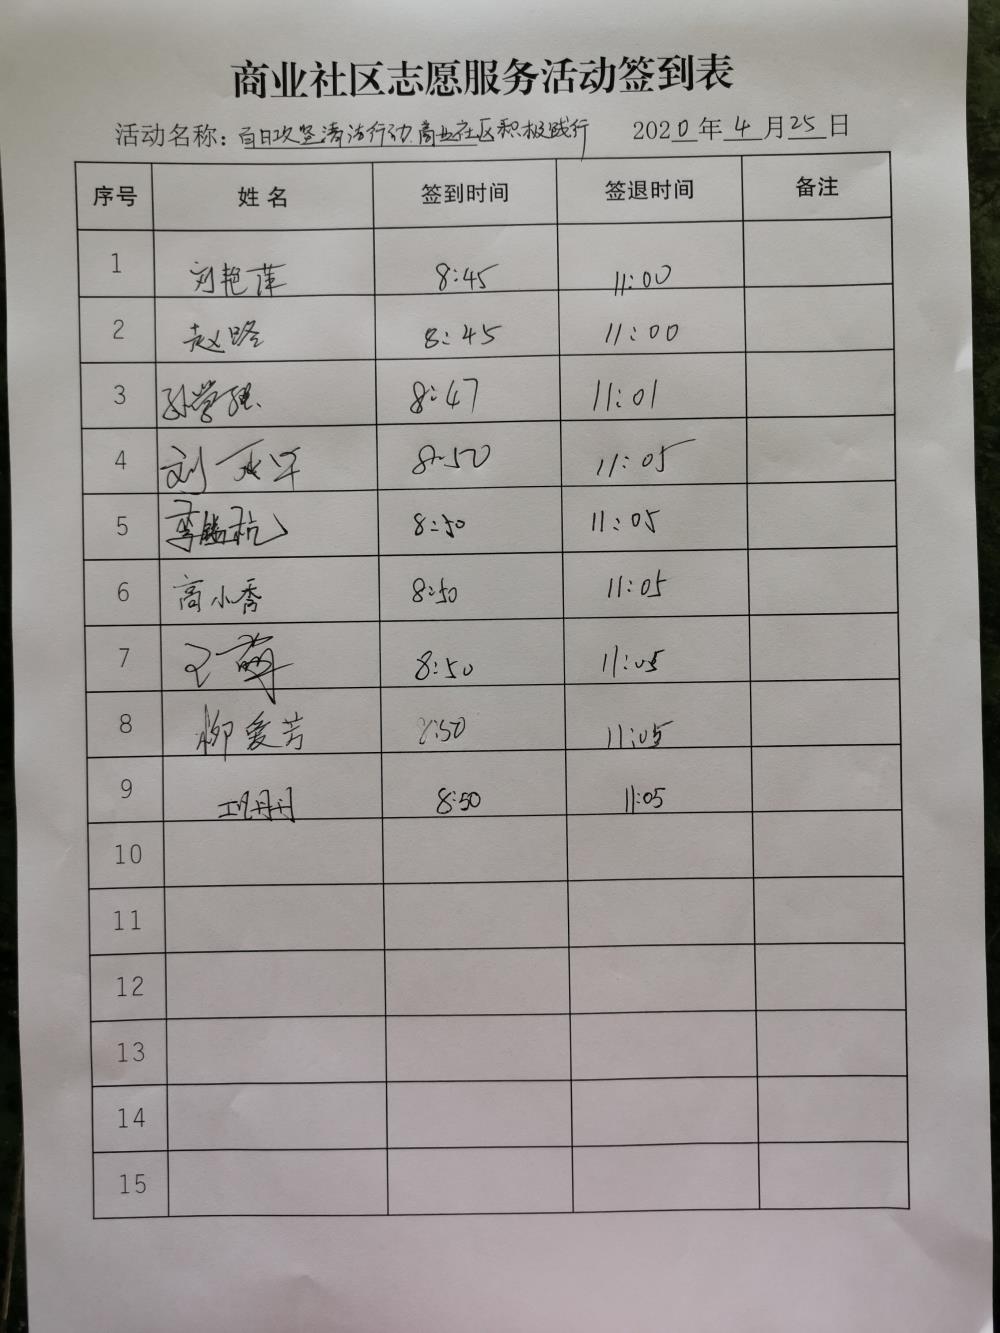 商业社区志愿服务活动签到表
活动名称：百日攻坚清洁行动.商业社区积极践行 2020年4月25日
序号 姓名 签到时间 签退时间 备注
1 刘艳萍 8:45 11:00
2 赵璐 8:45 11:00
3 孙学强 8:47 11:01
4 刘永军 8:50 11:05
5 8:50 11:05
6 高小秀 8:50 11:05
7 王萌 8:50 11:05
8 柳爱芳 8:50 11:05
9 巩丹丹 8:50 11:05
10
11
12
13
14
15